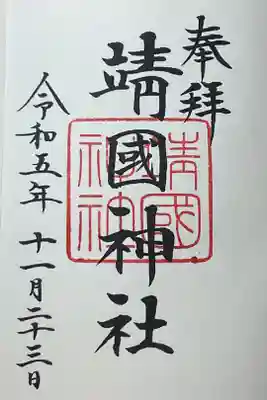 奉拝
靖國神社
令和五年 十一月二十三日
靖國
神社